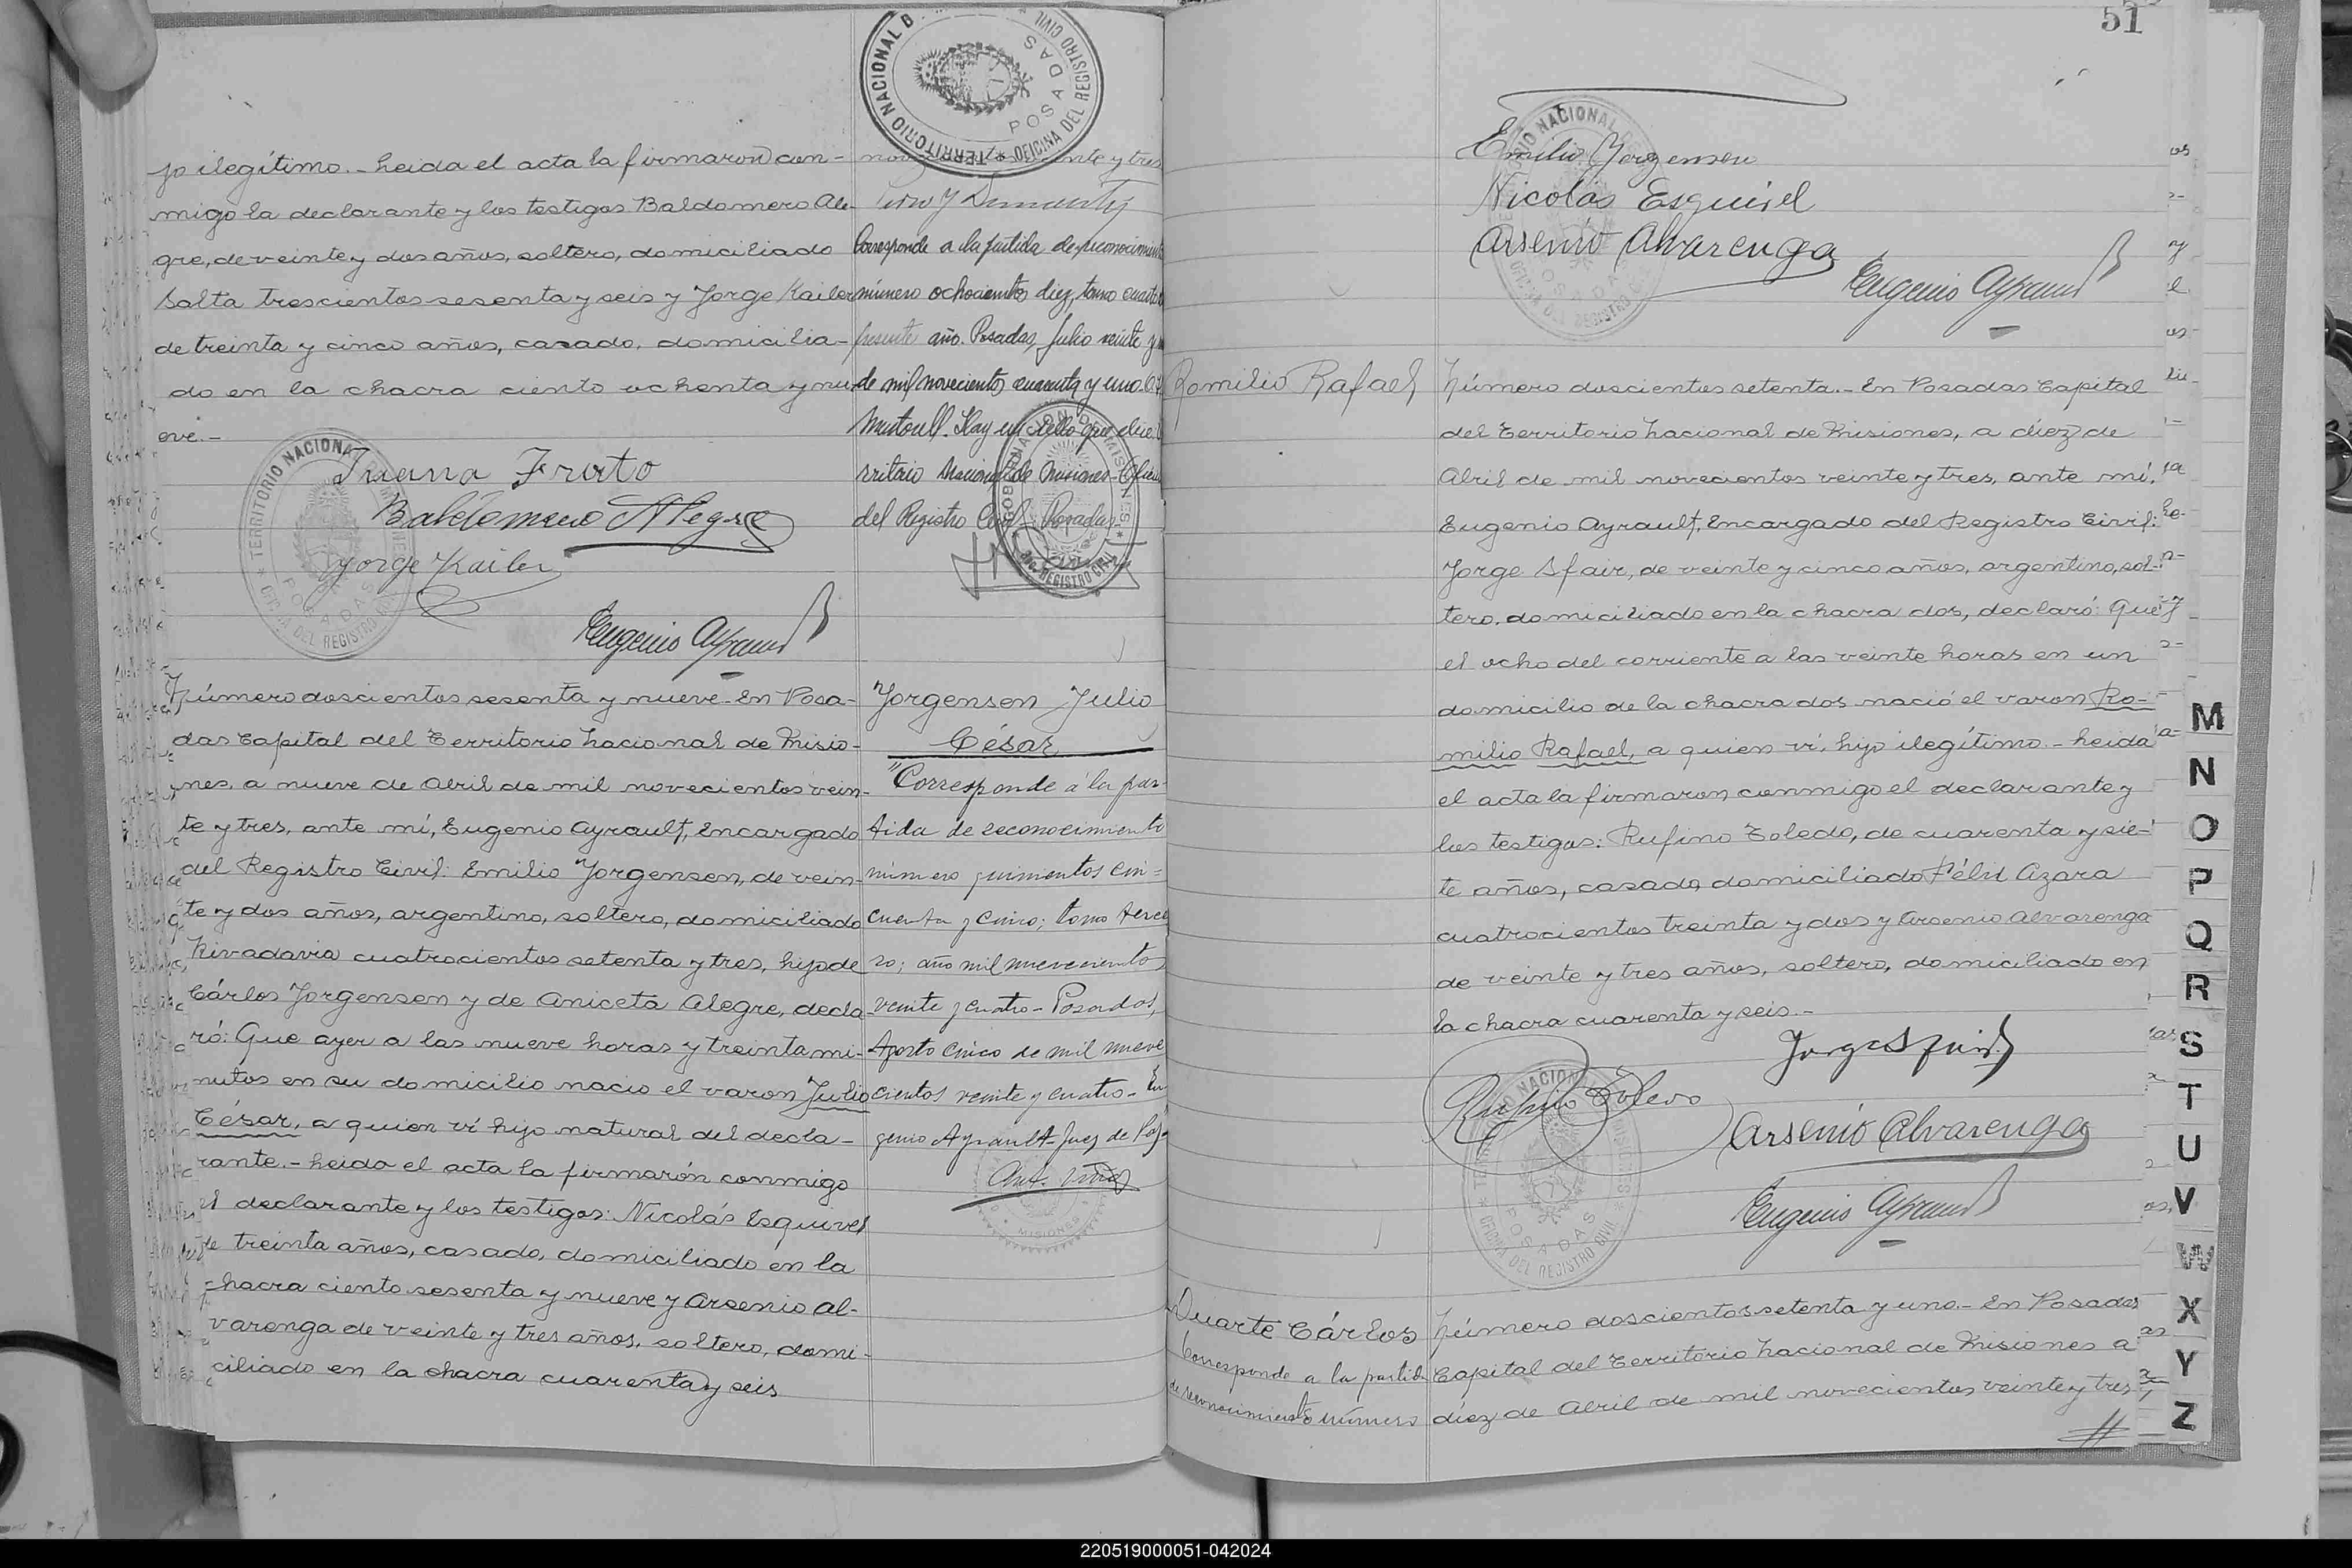 jo ilegítimo.- Leida el acta la firmaron con-
migo la declarante y los testigos Baldomero Ale-
gre, de veinte y dos años, soltero, domiciliado
Salta trescientos sesenta y seis y Jorge Kailer
de treinta y cinco años, casado, domicilia-
do en la chacra ciento ochenta y nu-
eve.-
Juana Fruto
Baldomero Alegre
Jorge Kailer
Eugenio Ayrault
TERRITORIO NACIONAL
OFICINA DEL REGISTRO CIVIL
POSADAS
Número doscientos sesenta y nueve.- En Posa-
das Capital del Territorio Nacional de Misio-
nes, a nueve de Abril de mil novecientos vein-
te y tres, ante mí, Eugenio Ayrault, Encargado
del Registro Civil: Emilio Jorgensen, de vein-
te y dos años, argentino, soltero, domiciliado
Rivadavia cuatrocientos setenta y tres, hijo de
Cárlos Jorgensen y de Aniceta Alegre, decla-
ró: Que ayer a las nueve horas y treinta mi-
nutos en su domicilio nacio el varon Julio
César, a quien ví hijo natural del decla-
rante.- Leida el acta la firmarón conmigo
el declarante y los testigos: Nicolás Esquivel
de treinta años, casado, domiciliado en la
chacra ciento sesenta y nueve y Arsenio Al-
varenga de veinte y tres años, soltero, domi-
ciliado en la chacra cuarenta y seis
TERRITORIO NACIONAL D
OFICINA DEL REGISTRO CIVIL
POSADAS
nte y tres
Corresponde a la partida de reconocimiento
número ochocientos diez, tomo cuarto
presente año. Posadas, Julio veinte y
de mil novecientos cuarenta y uno.
Hay un sello que dice:
rritorio Nacional de Misiones- Oficina
del Registro Civil- Posadas-
Jorgensen Julio
César
"Corresponde á la par-
tida de reconocimiento
número quinientos cin-
cuenta y cinco; tomo terce
ro; año mil nuevecientos
veinte y cuatro- Posadas,
Agosto cinco de mil nueve
cientos veinte y cuatro- Eu
genio Ayrault- Juez de Paz
51
Emilio Jorgensen
Nicolás Esquivel
Arsenio Alvarenga
Eugenio Ayrault
Romilio Rafael
Número doscientos setenta.- En Posadas Capital
del Territorio Nacional de Misiones, a diez de
Abril de mil novecientos veinte y tres, ante mí,
Eugenio Ayrault, Encargado del Registro Civil:
Jorge Sfair, de veinte y cinco años, argentino, sol-
tero, domiciliado en la chacra dos, declaró: Que
el ocho del corriente a las veinte horas en un
domicilio de la chacra dos nació el varon Ro-
milio Rafael, a quien ví, hijo ilegítimo.- Leida
el acta la firmaron conmigo el declarante y
los testigos: Rufino Toledo, de cuarenta y sie-
te años, casado, domiciliado Félix Azara
cuatrocientos treinta y dos y Arsenio Alvarenga
de veinte y tres años, soltero, domiciliado en
la chacra cuarenta y seis.-
Jorge Sfair
Rufino Toledo
Arsenio Alvarenga
Eugenio Ayrault
Duarte Cárlos
Corresponde a la partida
de reconocimiento número
Número doscientos setenta y uno.- En Posadas
Capital del Territorio Nacional de Misiones a
diez de Abril de mil novecientos veinte y tres,
M
N
O
P
Q
R
S
T
U
V
W
X
Y
Z
220519000051-042024